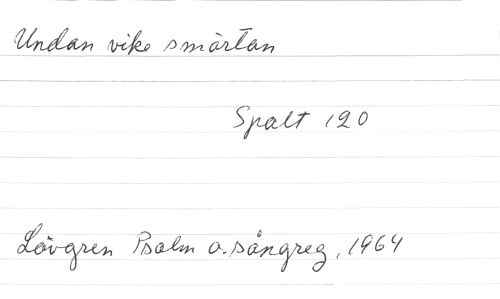 Undan vike smärtan
Spalt 120
Lövgren Psalm o. sångreg, 1964